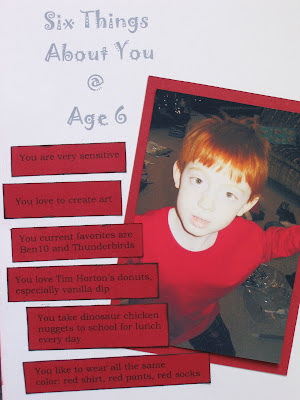 Six Things
About You
@
Age 6
You are very sensitive
You love to create art
You current favorites are
Ben10 and Thunderbirds
You love Tim Horton's donuts,
especially vanilla dip
You take dinosaur chicken
nuggets to school for lunch
every day
You like to wear all the same
color: red shirt, red pants, red socks